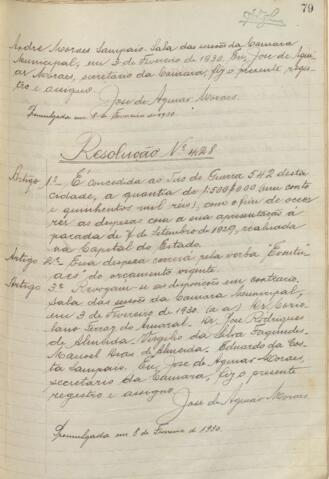 79
André Moraes Sampaio. Sala das sessões da Camara
Municipal, em 3 de Fevereiro de 1930. Eu, José de Agui-
ar Moraes, secretario da Camara, fiz o presente regis-
tro e assigno.
José de Aguiar Moraes.
Promulgada em 8 de Fevereiro de 1930.
Resolução Nº 428
Artigo 1º É concedida ao Tiro de Guerra 542 desta
cidade, a quantia de 1:500$000 (um conto
e quinhentos mil réis), com o fim de occor-
rer as despesas com a sua apresentação á
parada de 7 de Setembro de 1929, realisada
na Capital do Estado.
Artigo 2º Essa despesa correrá pela verba "Eventu-
aes" do orçamento vigente.
Artigo 3º Revogam-se as disposições em contrario.
Sala das sessões da Camara Municipal,
em 3 de Fevereiro de 1930. (a a) Dr. Corio-
lano Ferraz do Amaral. Dr. José Rodrigues
de Almeida. Virgilio da Silva Fagundes.
Manoel Dias d'Almeida. Eduardo da Cos-
ta Sampaio. Eu, José de Aguiar Moraes,
secretario da Camara, fiz o presente
registro e assigno.
José de Aguiar Moraes
Promulgada em 8 de Fevereiro de 1930.